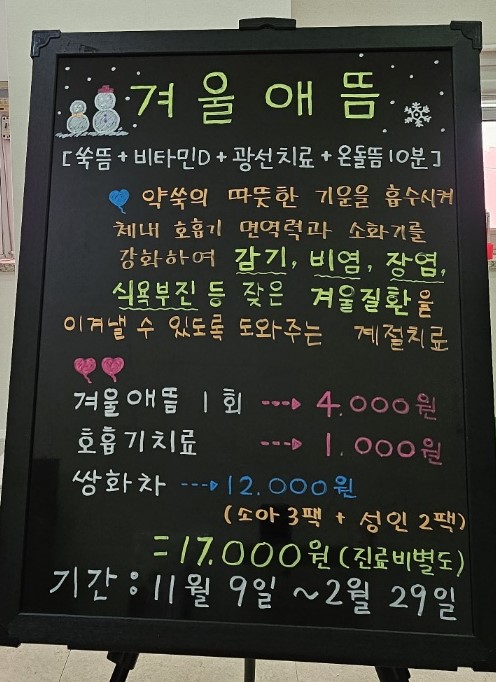 겨울애뜸
[쑥뜸+비타민D+광선치료+온돌뜸10분]
약쑥의 따뜻한 기운을 흡수시켜
체내 호흡기 면역력과 소화기를
강화하여 감기, 비염, 장염,
식욕부진 등 잦은 겨울질환을
이겨낼 수 있도록 도와주는 계절치료
겨울애뜸 1회 ---> 4.000원
호흡기치료 ---> 1.000원
쌍화차 ---> 12.000원
(소아3팩 + 성인2팩)
=17.000원(진료비별도)
기간:11월 9일 ~2월 29일